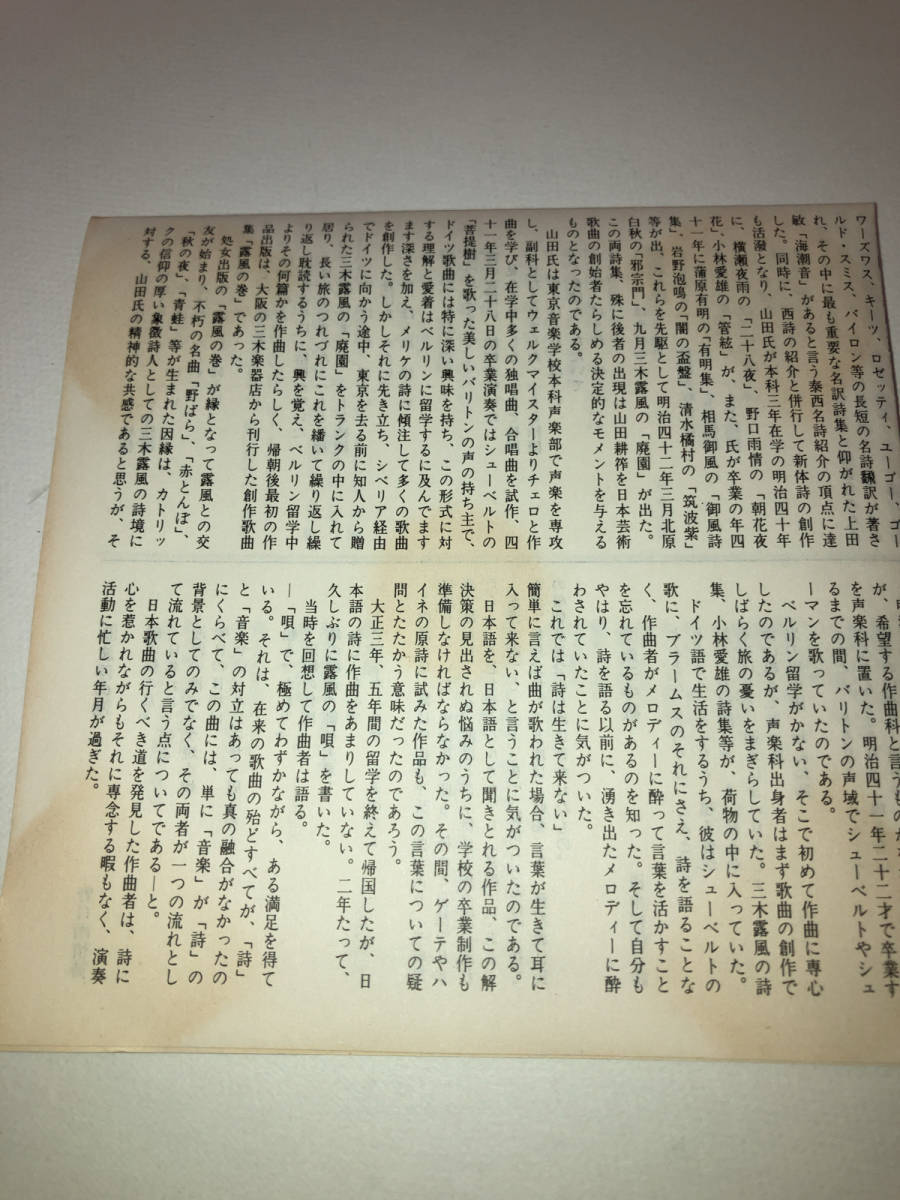 ワーズワス、キーツ、ロセッティ、ユーゴー、ゴー
ルド・スミス、バイロン等の長短の名詩飜訳が著さ
れ、その中に最も重要な名訳詩集と仰がれた上田
敏「海潮音」があると言う泰西名詩紹介の頂点に達
した。同時に、西詩の紹介と併行して新体詩の創作
も活潑となり、山田氏が本科三年在学の明治四十年
に、横瀬夜雨の「二十八夜」、野口雨情の「朝花夜
花」小林愛雄の「管絃」が、また、氏が卒業の年四
十一年に蒲原有明の「有明集」、相馬御風の「御風詩
集」、岩野泡鳴の「闇の盃盤」、清水橘村の「筑波紫」
等が出、これらを先駆として明治四十二年三月北原
白秋の「邪宗門」、九月三木露風の「廃園」が出た。
この両詩集、殊に後者の出現は山田耕筰を日本芸術
歌曲の創始者たらしめる決定的なモメントを与える
ものとなったのである。
山田氏は東京音楽学校本科声楽部で声楽を専攻
し、副科としてウェルクマイスターよりチェロと作
曲を学び、在学中多くの独唱曲、合唱曲を試作、四
十一年三月二十八日の卒業演奏ではシューベルトの
「菩提樹」を歌った美しいバリトンの声の持ち主で、
ドイツ歌曲には特に深い興味を持ち、この形式に対
する理解と愛着はベルリンに留学するに及んでます
ます深さを加え、メリケの詩に傾注して多くの歌曲
を創作した。しかしそれに先き立ち、シベリア経由
でドイツに向かう途中、東京を去る前に知人から贈
られた三木露風の「廃園」をトランクの中に入れて
居り、長い旅のつれづれにこれを繙いて繰り返し繰
り返し耽読するうちに、興を覚え、ベルリン留学中
よりその何篇かを作曲したらしく、帰朝後最初の作
品出版は、大阪の三木楽器店から刊行した創作歌曲
集「露風の巻」であった。
処女出版の「露風の巻」が縁となって露風との交
友が始まり、不朽の名曲「野ばら」、「赤とんぼ」、
「秋の夜」、「青蛙」等が生まれた因縁は、カトリッ
クの信仰の厚い象徴詩人としての三木露風の詩境に
対する、山田氏の精神的な共感であると思うが、そ
が、希望する作曲科と言うものが
を声楽科に置いた。明治四十一年二十二才で卒業す
るまでの間、バリトンの声域でシューベルトやシュ
ーマンを歌っていたのである。
ベルリン留学がかない、そこで初めて作曲に専心
したのであるが、声楽科出身者はまず歌曲の創作で
しばらく旅の憂いをまぎらしていた。三木露風の詩
集、小林愛雄の詩集等が、荷物の中に入っていた。
ドイツ語で生活をするうち、彼はシューベルトの
歌に、ブラームスのそれにさえ、詩を語ることな
く、作曲者がメロディーに酔って言葉を活かすこと
を忘れているものがあるのを知った。そして自分も
やはり、詩を語る以前に、湧き出たメロディーに酔
わされていたことに気がついた。
これでは「詩は生きて来ない」
簡単に言えば曲が歌われた場合、言葉が生きて耳に
入って来ない、と言うことに気がついたのである。
日本語を、日本語として聞きとれる作品、この解
決策の見出されぬ悩みのうちに、学校の卒業制作も
準備しなければならなかった。その間、ゲーテやハ
イネの原詩に試みた作品も、この言葉についての疑
問とたたかう意味だったのであろう。
大正三年、五年間の留学を終えて帰国したが、日
本語の詩に作曲をあまりしていない。二年たって、
久しぶりに露風の「唄」を書いた。
当時を回想して作曲者は語る。
―「唄」で、極めてわずかながら、ある満足を得て
いる。それは、在来の歌曲の殆どすべてが、「詩」
と「音楽」の対立はあっても真の融合がなかったの
にくらべて、この曲には、単に「音楽」が「詩」の
背景としてのみでなく、その両者が一つの流れとし
て流れていると言う点についてである―と。
日本歌曲の行くべき道を発見した作曲者は、詩に
心を惹かれながらもそれに専念する暇もなく、演奏
活動に忙しい年月が過ぎた。